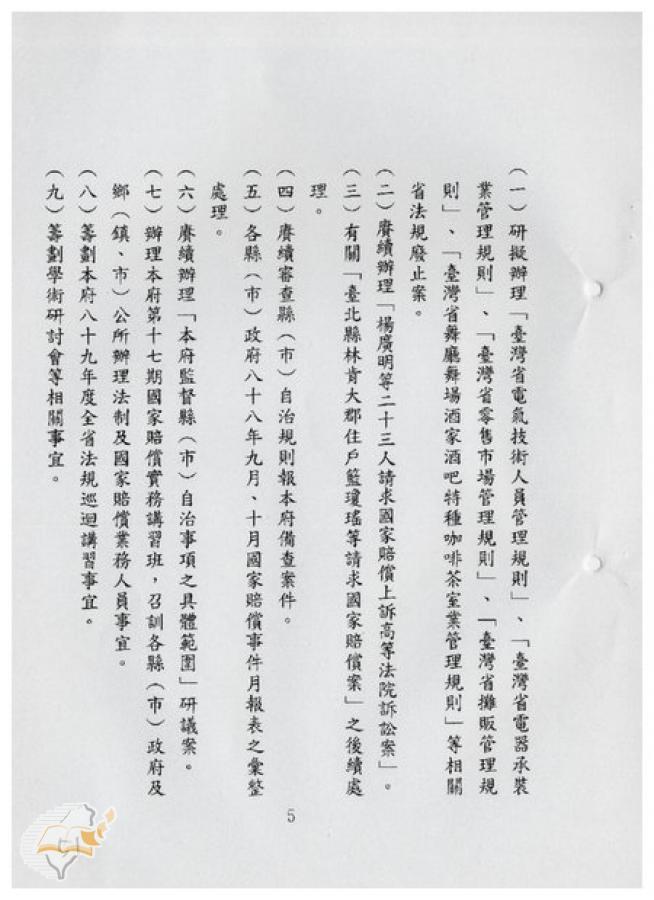 (一)研擬辦理「臺灣省電氣技術人員管理規則」、「臺灣省電器承裝
業管理規則」、「臺灣省零售市場管理規則」、「臺灣省攤販管理規
則」、「臺灣省舞廳舞場酒家酒吧特種咖啡茶室業管理規則」等相關
省法規廢止案。
(二)賡續辦理「楊廣明等二十三人請求國家賠償上訴高等法院訴訟案」。
(三)有關「臺北縣林肯大郡住戶籃瓊瑤等請求國家賠償案」之後續處
理。
(四)賡續審查縣(市)自治規則報本府備查案件。
(五)各縣(市)政府八十八年九月、十月國家賠償事件月報表之彙整
處理。
(六)賡續辦理「本府監督縣(市)自治事項之具體範圍」研議案。
(七)辦理本府第十七期國家賠償實務講習班，召訓各縣(市)政府及
鄉(鎮、市)公所辦理法制及國家賠償業務人員事宜。
(八)籌劃本府八十九年度全省法規巡迴講習事宜。
(九)籌劃學術研討會等相關事宜。
5